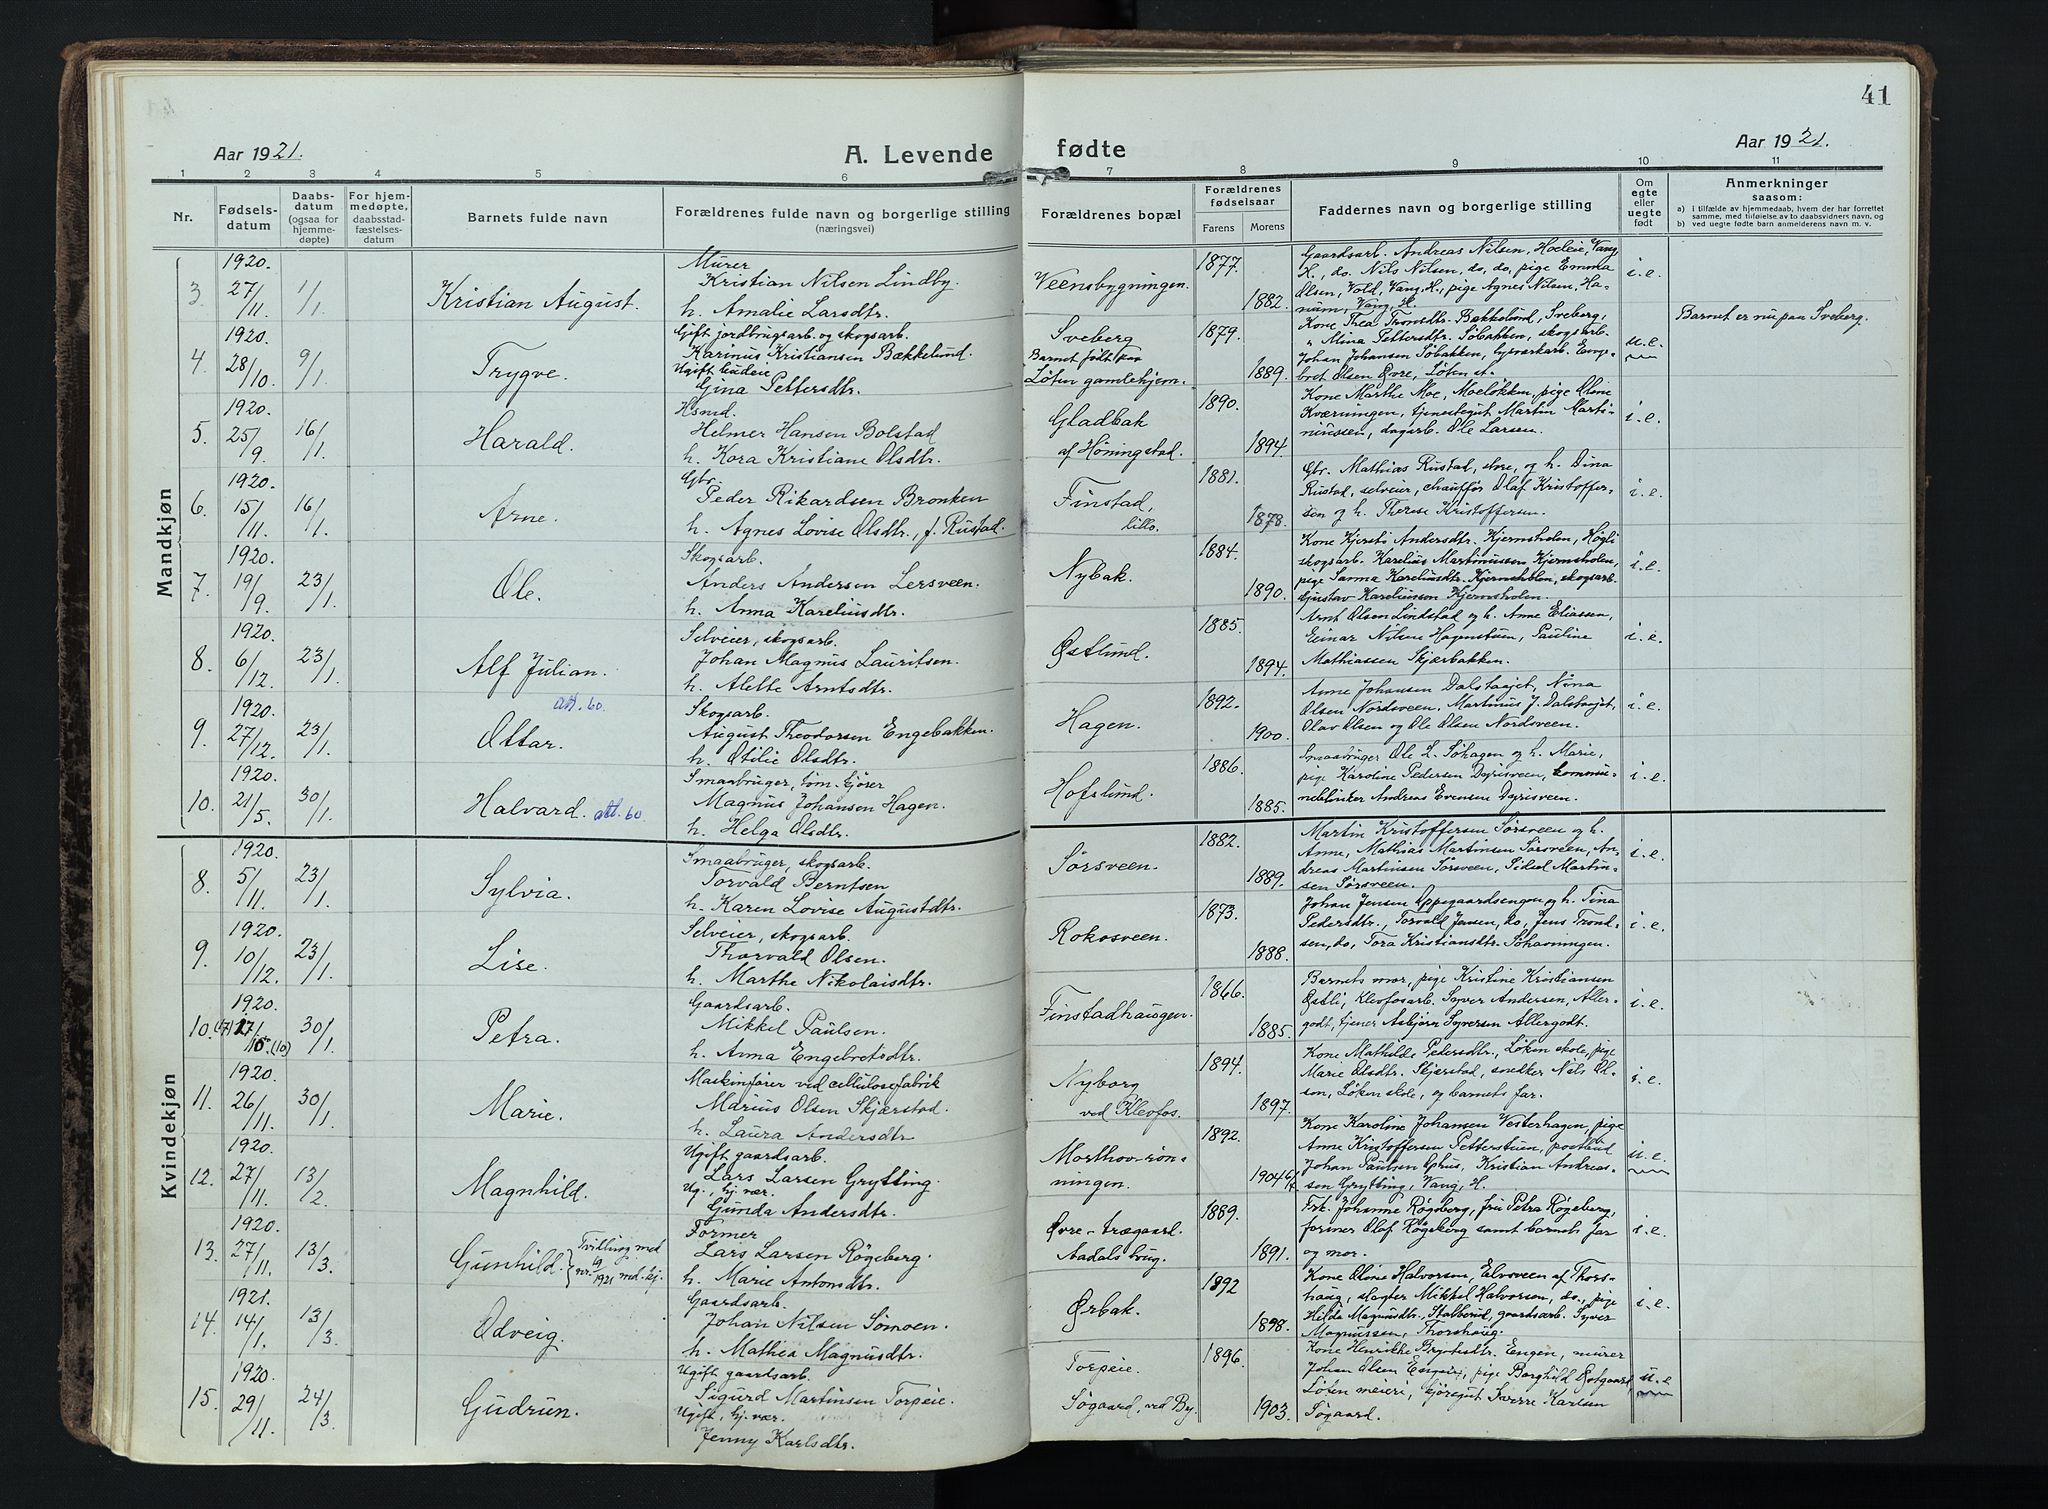 41
Aar 1921.
A. Levende fødte
Aar 1921.
1 2 3 4 5 6 7 8 9 10 11
Nr.
Fødsels-
datum
Daabs-
datum
(ogsaa for
hjemme-
døpte)
For hjem-
medøpte,
daabsstad-
fæstelses-
datum
Barnets fulde navn
Forældrenes fulde navn og borgerlige stilling
(næringsvei)
Forældrenes bopæl
Forældrenes
fødselsaar
Farens Morens
Faddernes navn og borgerlige stilling
Om
egte
eller
uegte
født
Anmerkninger
saasom:
a) i tilfælde av hjemmedaab, hvem der har forrettet
samme, med tilføielse av to daabsvidners navn, og
b) ved uegte fødte barn anmelderens navn m. v.
Mandkjøn
3. 1920. 27/11. 1/1
Kristian August.
Murer
Kristian Nilsen Lindby.
h. Amalie Larsdtr.
Veensbygningen.
1877. 1882.
Gaardsarb. Andreas Nilsen, Hoeleie, Vang
H., do. Nils Nilsen, do, do, pige Emma
Olsen, Vold, Vang, H., pige Agnes Nilsen, Ha-
num, Vang, H.
i.e.
4. 1920. 28/10. 9/1
Trygve.
Gift jordbrugsarb. og skogsarb.
Karinus Kristiansen Bækkelund.
Ugift budeie
Gina Pettersdtr.
Sveberg
Barnet født paa
Løten gamlehjem.
1879. 1889.
Kone Thea Tronsdtr. Bækkelund, Sveberg,
" Mina Pettersdtr. Søbakken, skogsarb.
Johan Johansen Søbakken, Enge-
bret Olsen Øvre, Løten st.
u.e.
Barnet er nu paa Sveberg.
5. 1920. 25/9. 16/1
Harald.
Hsmd.
Helmer Hansen Bolstad
h. Kora Kristiane Olsdtr.
Gladbak
af Høningstad.
1890. 1894.
Kone Marthe Moe, Moeløkken, pige Oline
Kværningen, tjenestegut Martin Marti-
niussen, dagarb. Ole Larsen.
i.e.
6. 1920. 15/11. 16/1
Arne.
Gbr.
Peder Rikardsen Bronken
h. Agnes Lovise Olsdtr., f. Rustad.
Finstad,
lille.
1881. 1878.
Gbr. Mathias Rustad, øvre, og h. Dina
Rustad, selveier, chauffør Olaf Kristoffer-
sen og h. Therese Kristoffersen.
i.e.
7. 1920. 19/9. 23/1
Ole.
Skogsarb.
Anders Andersen Lersveen.
h. Anna Kareliusdtr.
Nybak.
1884. 1890.
Kone Kjersti Andersdtr. Kjernsholen, Høgli
skogsarb. Karelius Martinussen Kjernsholen,
pige Sanna Kareliusdtr. Kjernsholen, skogsarb.
Gustav Kareliussen Kjernsholen.
i.e.
8. 1920. 6/12. 23/1
Alf Julian.
Selveier, skogsarb.
Johan Magnus Lauritsen.
h. Alette Arntsdtr.
Østlund.
1885. 1894.
Arnt Olsen Lindstad og h. Anne Eliassen,
Einar Nilsen Hagenstuen, Pauline
Mathiassen Skjærbakken.
i.e.
9. 1920. 27/12. 23/1
att. 60.
Ottar.
Skogsarb.
August Theodorsen Engebakken.
h. Otilie Olsdtr.
Hagen.
1892. 1900.
Anne Johansen Dalstaajet, Nina
Olsen Nordsveen, Martinus J. Dalstaajet,
Olav Olsen og Ole Olsen Nordsveen.
i.e.
10. 1920. 21/5. 30/1
Halvard. att. 60.
Smaabruger, tøm. kjører
Magnus Johansen Hagen.
h. Helga Olsdtr.
Hofslund.
1886. 1885.
Smaabruger Ole L. Søhagen og h. Marie,
pige Karoline Pedersen Dyrisveen, kommu-
nearbeider Andreas Evensen Dyrisveen.
i.e.
Kvindekjøn
8. 1920. 5/11. 23/1
Sylvia.
Smaabruger, skogsarb.
Torvald Berntsen
h. Karen Lovise Augustdtr.
Sørsveen.
1882. 1889.
Martin Kristoffersen Sørsveen og h.
Anne, Mathias Martinsen Sørsveen, An-
dreas Martinsen Sørsveen, Sidsel Martin-
sen Sørsveen.
i.e.
9. 1920. 10/12. 23/1
Lise.
Selveier, skogsarb.
Thorvald Olsen.
h. Marthe Nikolaisdtr.
Rokosveen.
1873. 1888.
Johan Jensen Oppegaardsengen og h. Tina
Pedersdtr., Torvald Jensen, do, Jens Trond-
sen, do, Tora Kristiansdtr. Søhavningen.
i.e.
10. 1920. (17) 17/10. (10) 30/1
Petra.
Gaardsarb.
Mikkel Paulsen.
h. Anna Engebretsdtr.
Finstadhaugen.
1866. 1885.
Barnets mor, pige Kristine Kristiansen
Østli, Kleofosarb. Syver Andersen, Aller-
godt, tjener Asbjørn Syversen Allergodt.
i.e.
11. 1920. 26/11. 30/1
Marie.
Maskinfører ved cellulosefabrik
Marius Olsen Skjærstad.
h. Laura Andersdtr
Nyborg
ved Kleofos.
1894. 1897.
Kone Mathilde Pedersdtr., Løken skole, pige
Marie Olsdtr. Skjærstad, snedker Nils Ol-
sen, Løken skole, og barnets far.
i.e.
12. 1920. 27/11. 13/2
Magnhild.
Ugift gaardsarb.
Lars Larsen Grytting.
Ug., hj. vær.
Gunda Andersdtr.
Morthov-røn-
ningen.
1892. 1904 6/4
Kone Karoline Johansen Vesterhagen, pige
Anne Kristoffersen Petterstuen, postbud
Johan Paulsen Ophus, Kristian Andreas-
sen Grytting, Vang, H.
u.e.
13. 1920. 27/11. 13/3
Gunhild. {Tvilling med
nr. 19 1921 md. kj.
Former
Lars Larsen Røgeberg.
h. Marie Antonsdtr.
Øvre-trægaard.
Aadals brug.
1889. 1891.
Frk. Johanne Røgeberg, fru Petra Røgeberg,
former Olaf Røgeberg samt barnets far
og mor.
i.e.
14. 1921. 14/1. 13/3
Odveig.
Gaardsarb.
Johan Nilsen Sømoen.
h. Mathea Magnusdtr.
Ørbak.
1892 1898.
Kone Oline Halvorsen, Elvsveen af Thors-
haug, slagter Mikkel Halvorsen, do., pige
Hilda Magnusdtr. Stalberud, gaardsarb. Syver
Magnussen, Thorshaug.
i.e.
15. 1920. 29/11. 24/3
Gudrun.
Ugift gaardsarb.
Sigurd Martinsen Torpeie.
Ugift, hj. vær.
Jenny Karlsdtr.
Torpeie.
Søgaard, ved By.
1896. 1903.
Kone Henrikke Engen, murer
Johan Olsen Engen, pige Borghild
Løten meieri, kjøregut Sverre Karlsen
Søgaard.
u.e